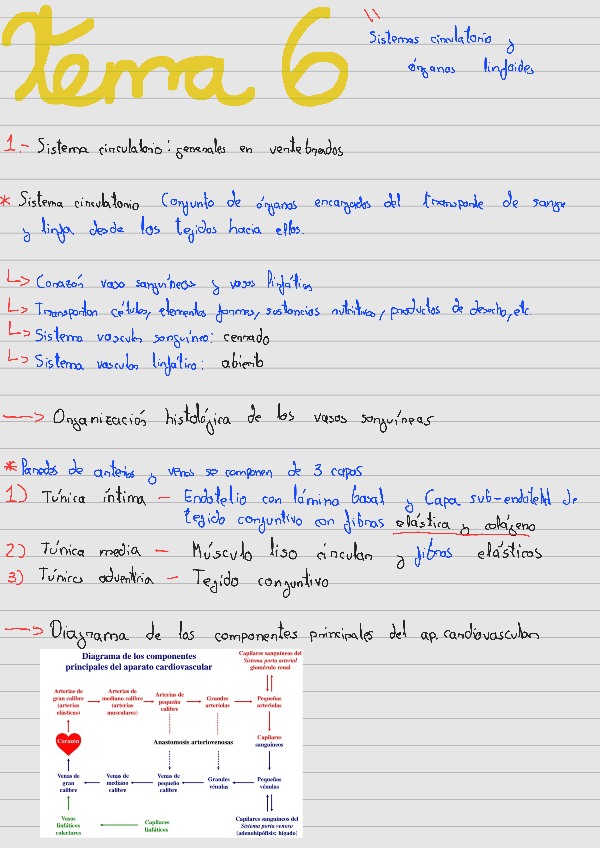 Tema 6
"
Sistemas circulatorio y
órganos linfoides
1.- Sistema circulatorio: generales en vertebrados
* Sistema circulatorio Conjunto de órganos encargados del transporte de sangre
y linfa desde los tejidos hacia ellos.
↳ Corazón vaso sanguíneas y vasos linfáticos
↳ Transportan células, elementos formes, sustancias nutritivas, productos de desecho, etc.
↳ Sistema vascular sanguíneo: cerrado
↳ Sistema vascular linfático: abierto
→ Organización histológica de los vasos sanguíneas
* Paredes de arterias y venas se componen de 3 capas
1) Túnica íntima — Endotelio con lámina basal y Capa sub-endotelial de
tejido conjuntivo con fibras elástica y colágeno
2) Túnica media — Músculo liso circular y fibras elásticos
3) Túnica adventicia — Tejido conjuntivo
→ Diagrama de los componentes principales del ap. cardiovascular
Diagrama de los componentes
principales del aparato cardiovascular
Capilares sanguíneos del
Sistema porta arterial
glomérulo renal
Arterias de
gran calibre
(arterias
elásticas)
Arterias de
mediano calibre
(arterias
musculares)
Arterias de
pequeño
calibre
Grandes
arteriolas
Pequeñas
arteriolas
Corazón
Anastomosis arteriovenosas
Capilares
sanguíneos
Venas de
gran
calibre
Venas de
mediano
calibre
Venas de
pequeño
calibre
Grandes
vénulas
Pequeñas
vénulas
Vasos
linfáticos
colectores
Capilares
linfáticos
Capilares sanguíneos del
Sistema porta venoso
(adenohipófisis; hígado)